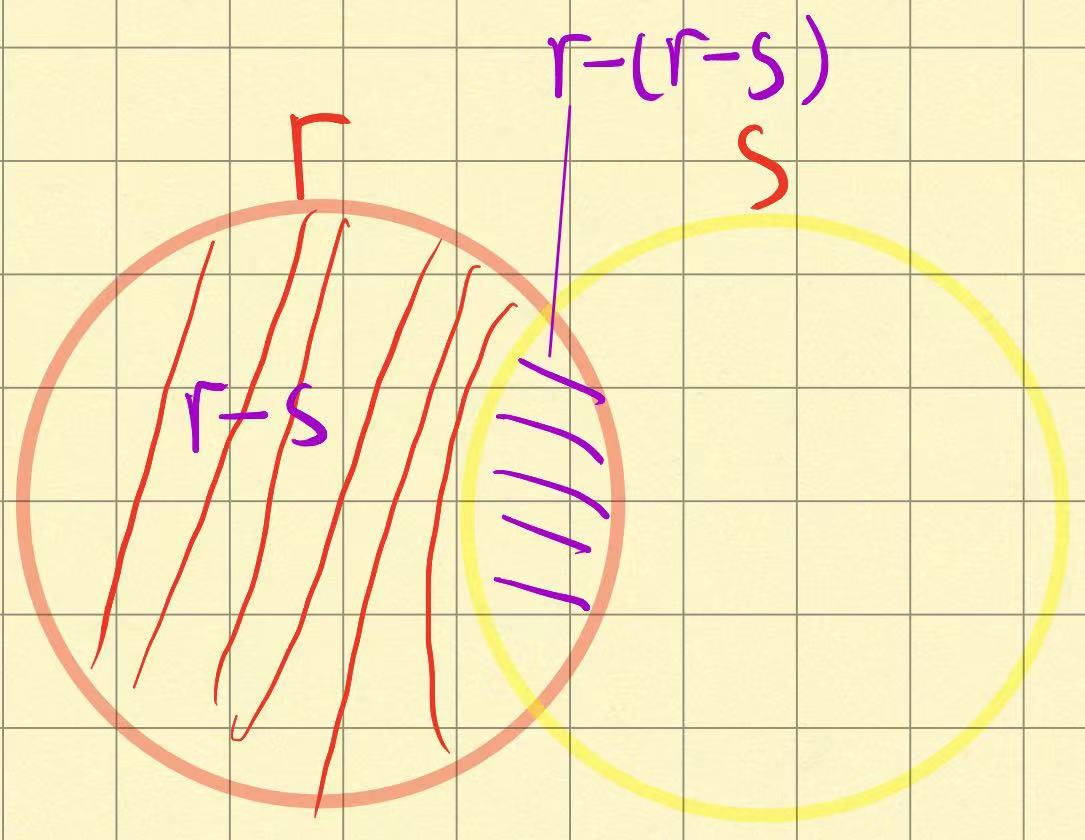 r-(r-s)
r
s
r-s